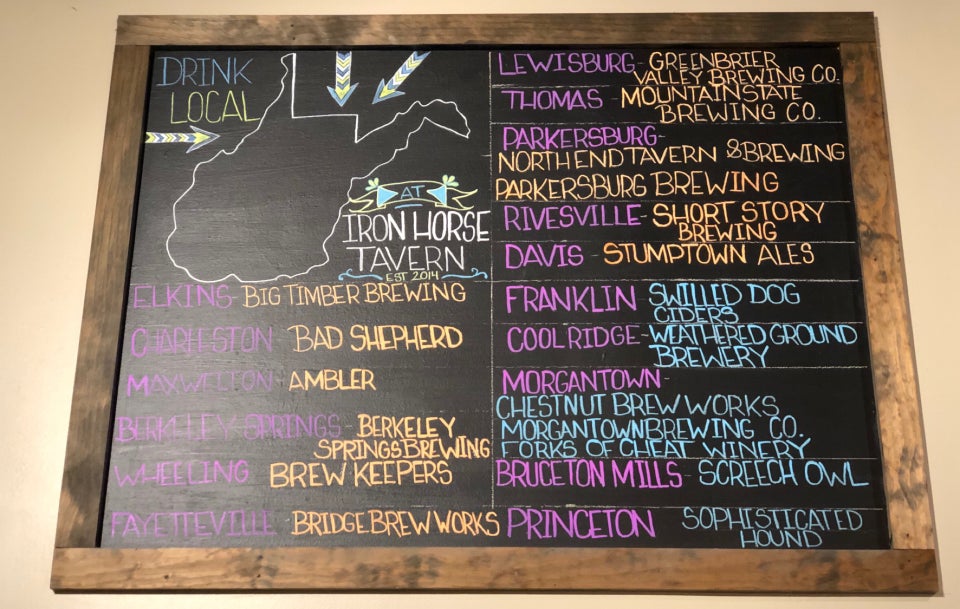 DRINK
LOCAL
AT
IRON HORSE
TAVERN
EST 2014
ELKINS- BIG TIMBER BREWING
CHARLESTON BAD SHEPHERD
MAXWELTON- AMBLER
BERKELEY SPRINGS- BERKELEY
SPRINGS BREWING
WHEELING BREW KEEPERS
FAYETTEVILLE - BRIDGE BREW WORKS
LEWISBURG- GREENBRIER
VALLEY BREWING CO.
THOMAS - MOUNTAIN STATE
BREWING CO.
PARKERSBURG-
NORTH END TAVERN & BREWING
PARKERSBURG BREWING
RIVESVILLE- SHORT STORY
BREWING
DAVIS - STUMPTOWN ALES
FRANKLIN SWILLED DOG
CIDERS
COOL RIDGE- WEATHERED GROUND
BREWERY
MORGANTOWN-
CHESTNUT BREW WORKS
MORGANTOWN BREWING CO.
FORKS OF CHEAT WINERY
BRUCETON MILLS- SCREECH OWL
PRINCETON SOPHISTICATED
HOUND